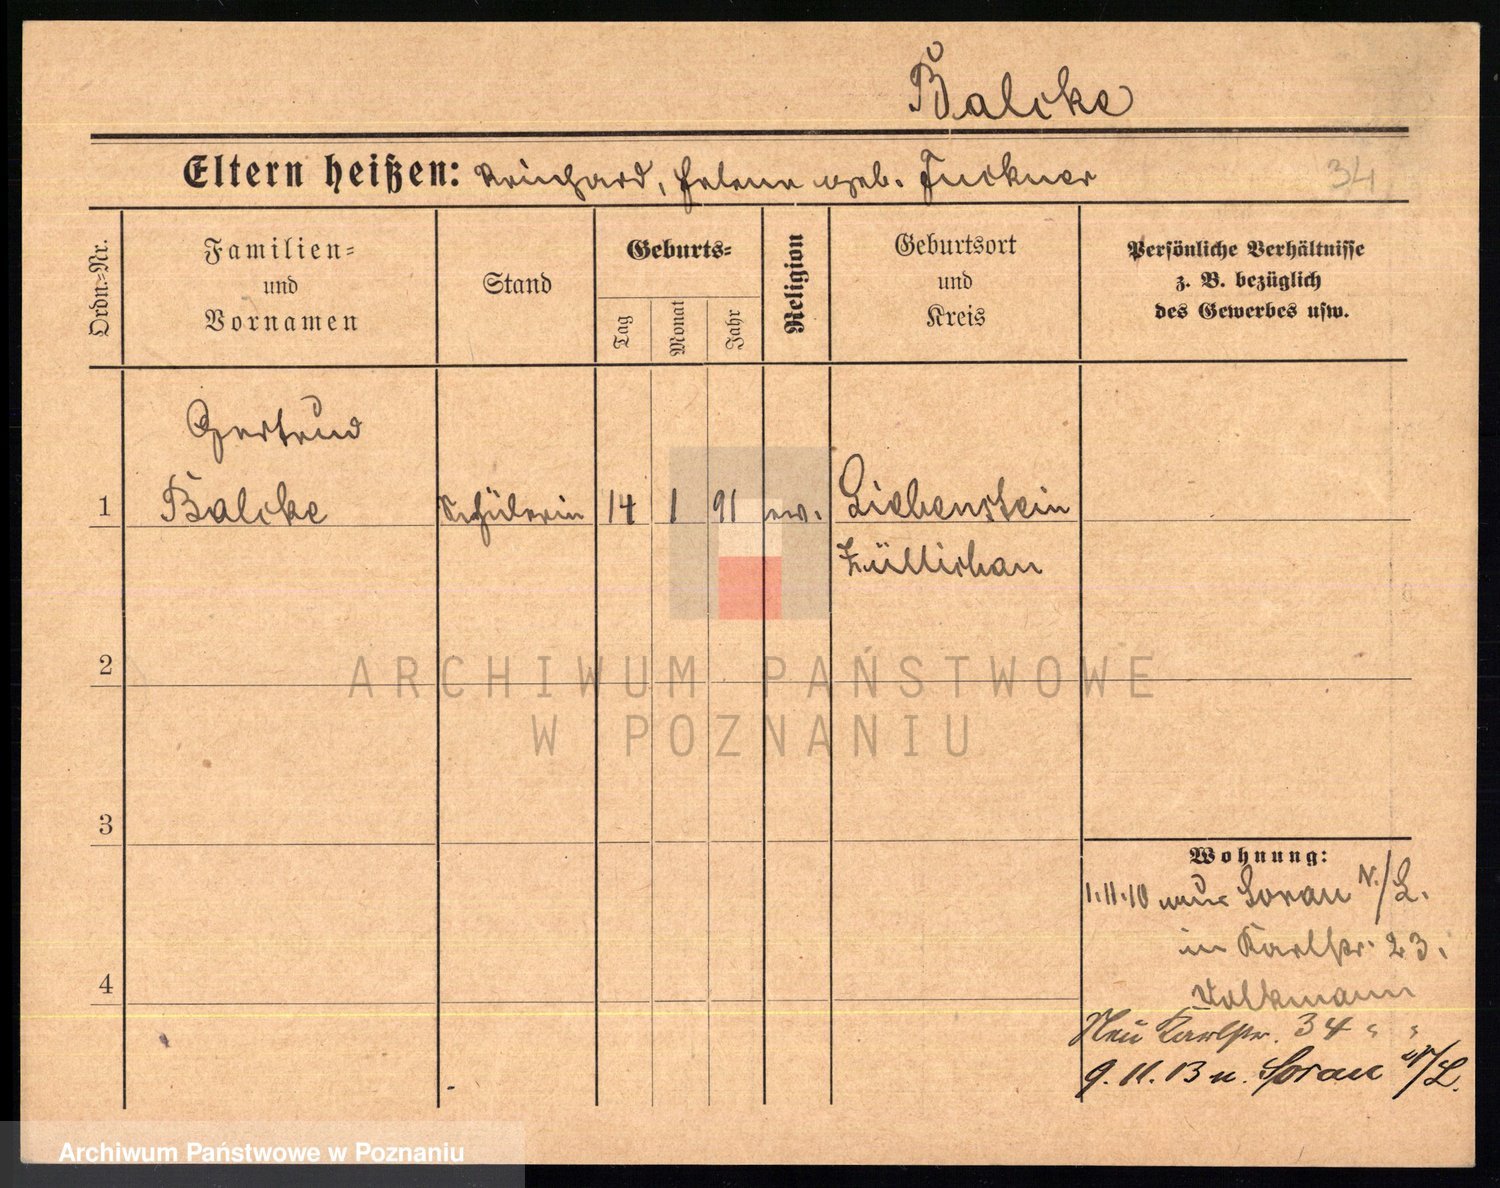 Balcke
Eltern heißen: Reinhard, Helene geb. Fuckner
34
Ordn.=Nr.
Familien=
und
Vornamen
Stand
Geburts=
Tag
Monat
Jahr
Religion
Geburtsort
und
Kreis
Persönliche Verhältnisse
z. B. bezüglich
des Gewerbes usw.
Gertrud
1 Balcke Schülerin 14 1 91 ev. Liebenstein
Züllichau
2
3
4
ARCHIWUM PAŃSTWOWE
W POZNANIU
Wohnung:
1.11.10 aus Sorau N./L.
in Karlstr. 23.
Volkmann
Neu Karlstr. 34 " "
9.11.13 n. Sorau N/L.
Archiwum Państwowe w Poznaniu